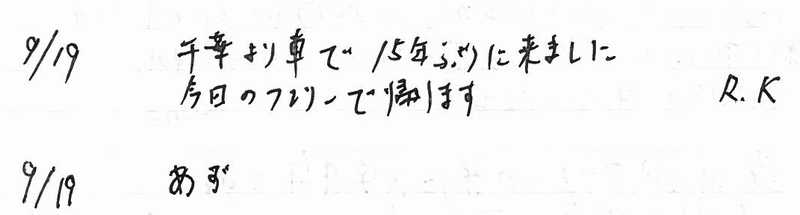 9/19 千葉より車で15年ぶりに来ました
今日のフェリーで帰ります R.K
9/19 あずさ